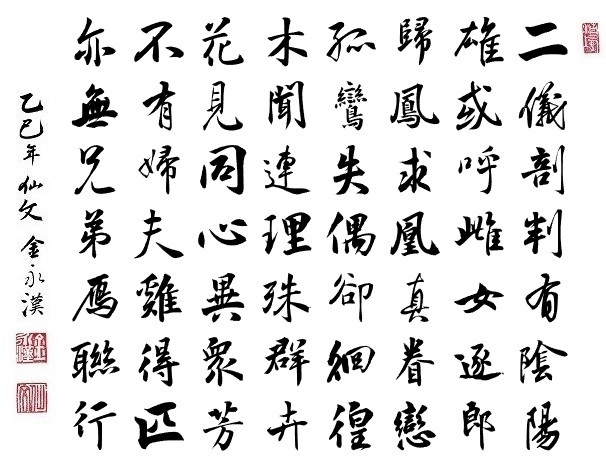 二儀剖判有陰陽
雄或呼雌女逐郎
歸鳳求凰真眷戀
孤鸞失偶卻徊徨
木聞連理殊群卉
花見同心異衆芳
不有婦夫雞得匹
亦無兄弟鴈聯行
乙巳年 仙文 金永漢